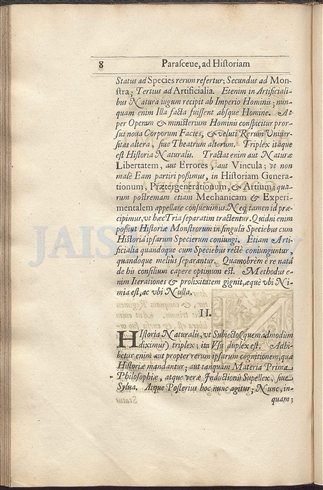 8 Parasceve, ad Historiam
Status ad Species rerum refertur; Secundus ad Mon-
stra; Tertius ad Artificialia. Etenim in Artificiali-
bus Natura iugum recipit ab Imperio Hominis; nun-
quam enim illa facta fuissent absque Homine. At
per Operam & ministerium Hominis conspicitur pror-
sus noua Corporum Facies, & veluti Rerum Vniuer-
sitas altera, siue Theatrum alterum. Triplex itaque
est Historia Naturalis. Tractat enim aut Naturæ
Libertatem, aut Errores, aut Vincula: vt non
malè Eam partiri possimus, in Historiam Genera-
tionum, Prætergenerationum, & Artium; qua-
rum postremam etiam Mechanicam & Experi-
mentalem appellare consueuimus. Neq; tamen id præ-
cipimus, vt hæc Tria separatim tractentur. Quidni enim
possint Historiæ Monstrorum in singulis Speciebus cum
Historia ipsarum Specierum coniungi. Etiam Arti-
ficialia quandoque cum Speciebus rectè coniunguntur,
quandoque meliùs separantur. Quamobrem è re natâ
de his consilium capere optimum est. Methodus e-
nim Iterationes & prolixitatem gignit, æquè vbi Ni-
mia est, ac vbi Nulla.
II.
HIstoria Naturalis, vt Subiecto (quemadmodùm
diximus) triplex, ita Vsu duplex est. Adhi-
betur enim aut propter rerum ipsarum cognitionem, quæ
Historiæ mandantur; aut tanquam Materia Prima
Philosophiæ, atque veræ Inductionis Supellex, siue
Sylua. Atque Posterius hoc nunc agitur; Nunc, in-
quam;